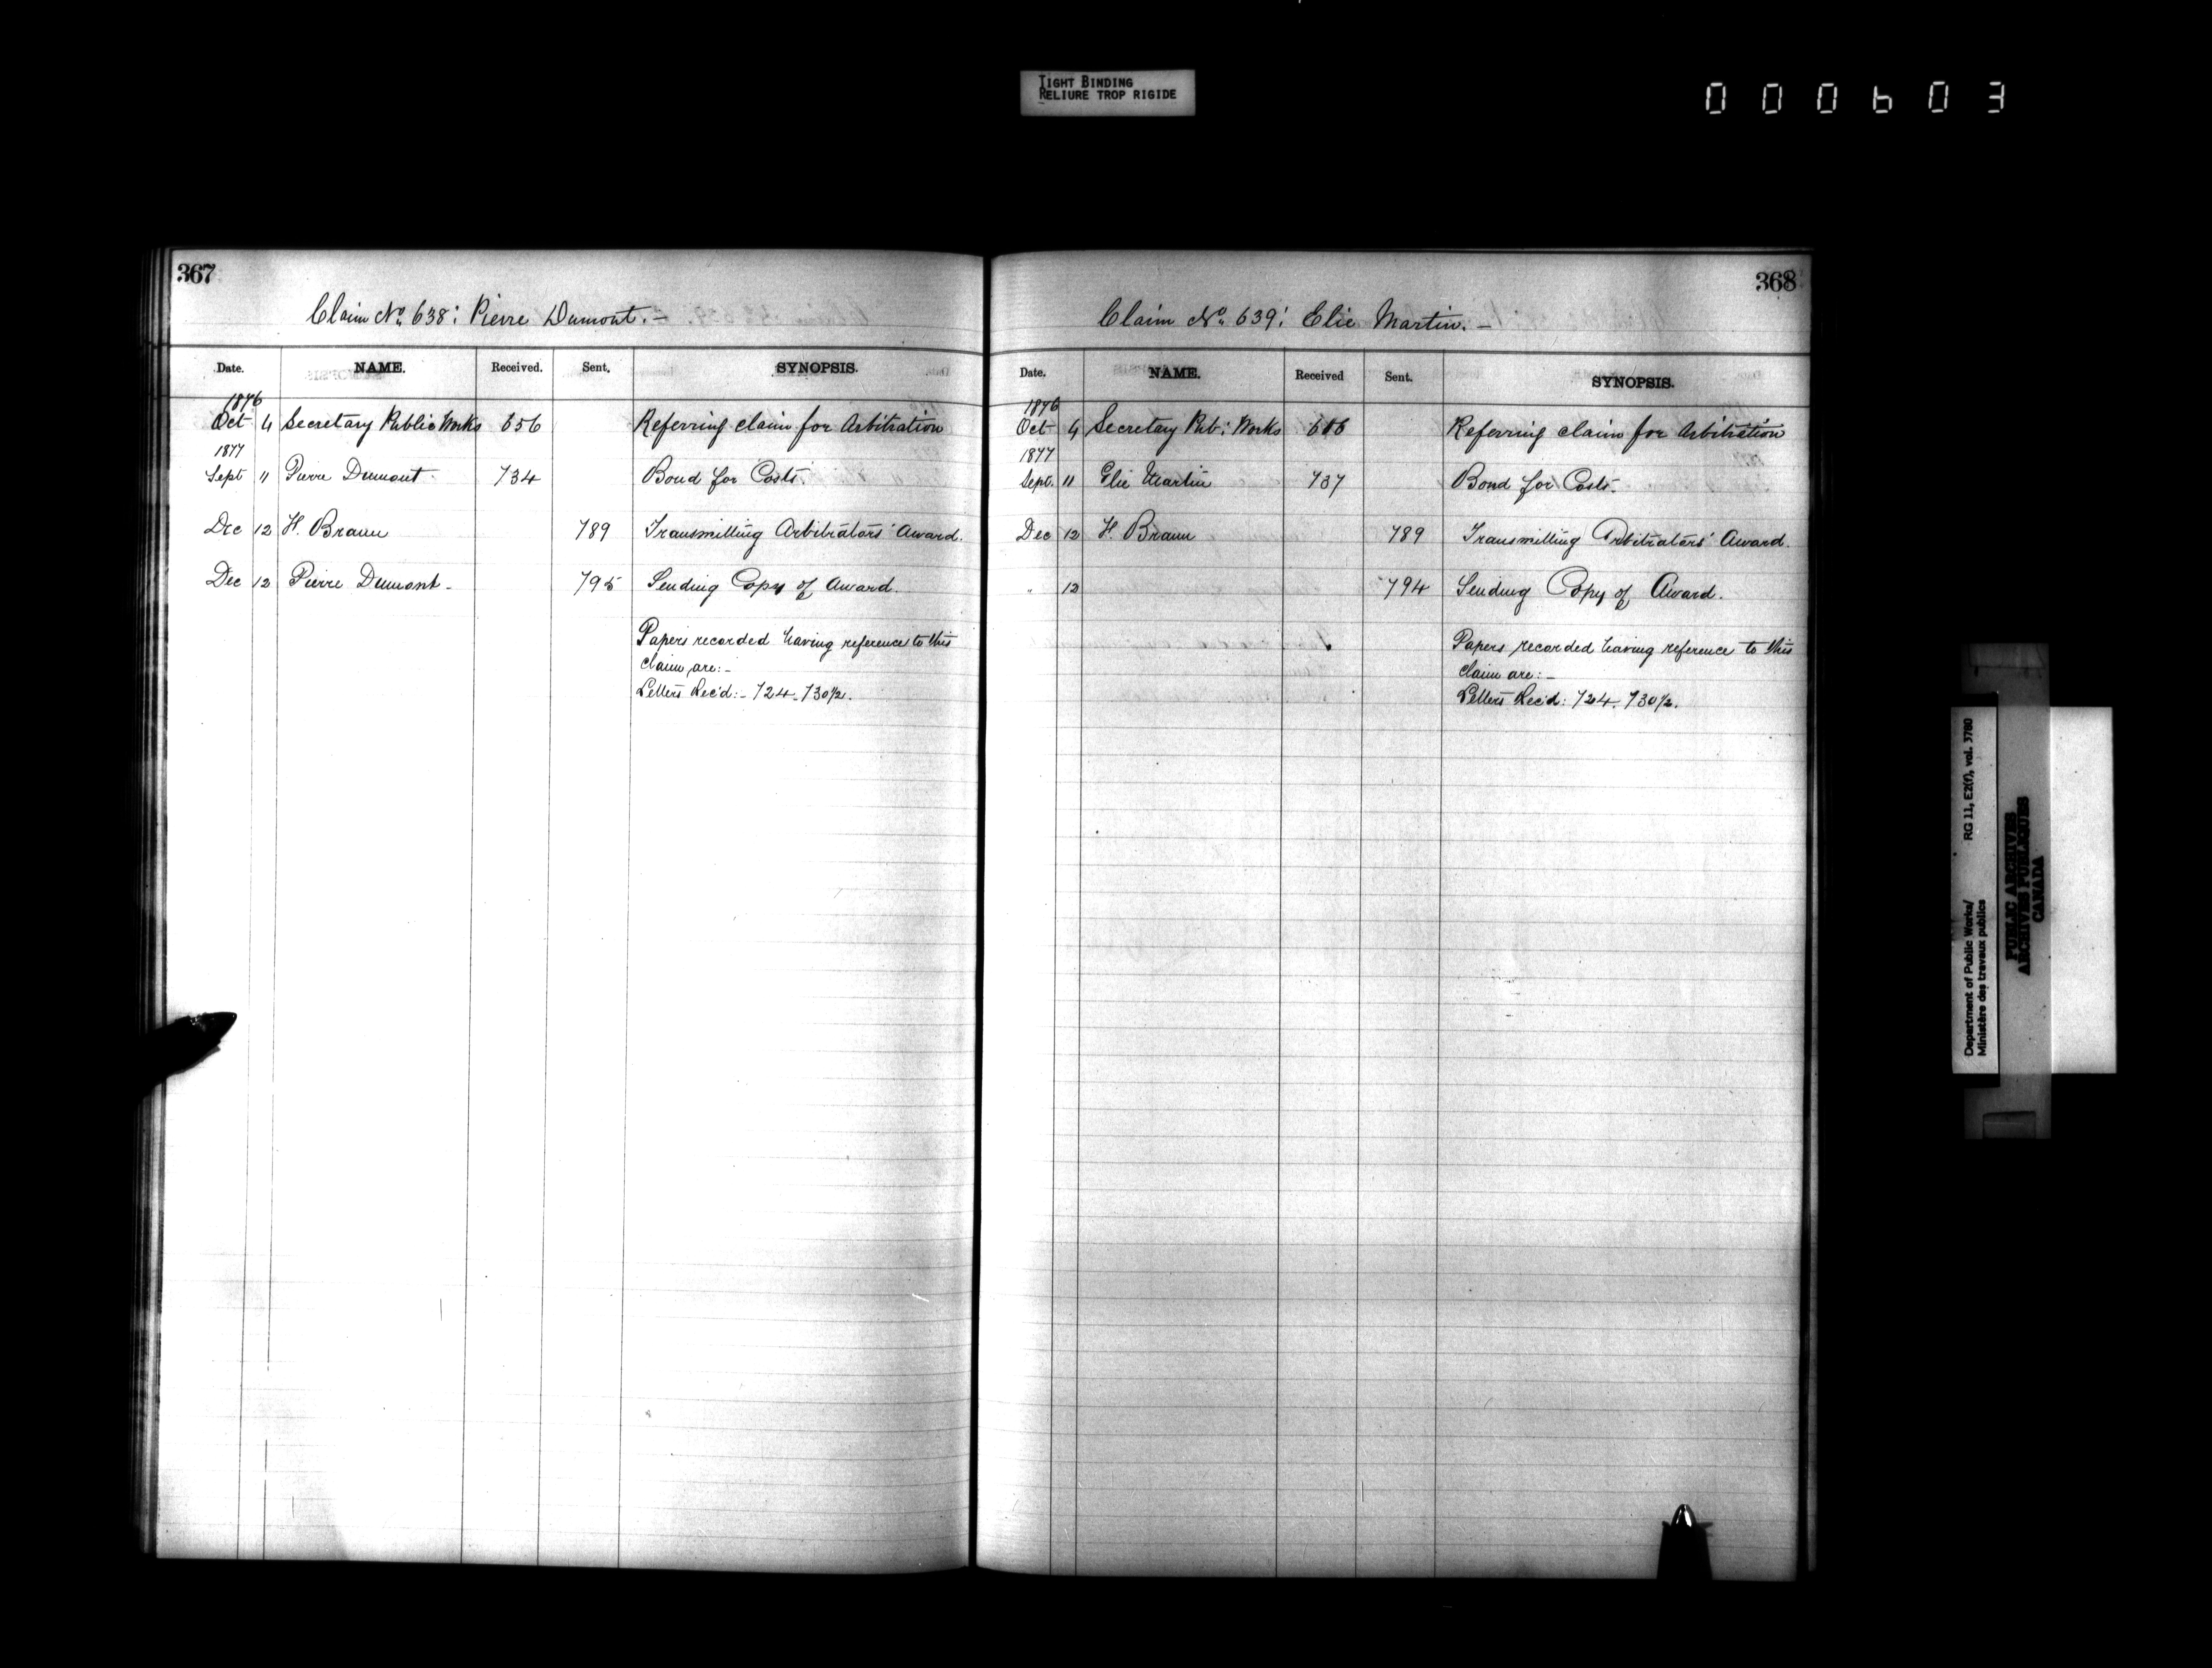 TIGHT BINDING
RELIURE TROP RIGIDE
000603
367
Claim No. 638: Pierre Dumont. –
Date. NAME. Received. Sent. SYNOPSIS.
1876
Oct 4 Secretary Public Works 656 Referring claim for Arbitration
1877
Sept 11 Pierre Dumont 734 Bond for Costs.
Dec 12 H. Braun 789 Transmitting Arbitrators' Award.
Dec 12 Pierre Dumont – 795 Sending Copy of Award.
Papers recorded having reference to this
claim are: –
Letters Rec'd: – 724 – 730½.
368
Claim No. 639: Elie Martin. –
Date. NAME. Received Sent. SYNOPSIS.
1876
Oct 4 Secretary Pub: Works Referring claim for Arbitration
1877
Sept. 11 Elie Martin 737 Bond for Costs.
Dec 12 H. Braun 789 Transmitting Arbitrators' Award.
" 12 794 Sending Copy of Award.
Papers recorded having reference to this
claim are: –
Letters Rec'd: 724. 730½.
Department of Public Works/ RG 11, E2(f), vol. 3780
Ministère des travaux publics
PUBLIC ARCHIVES
ARCHIVES PUBLIQUES
CANADA